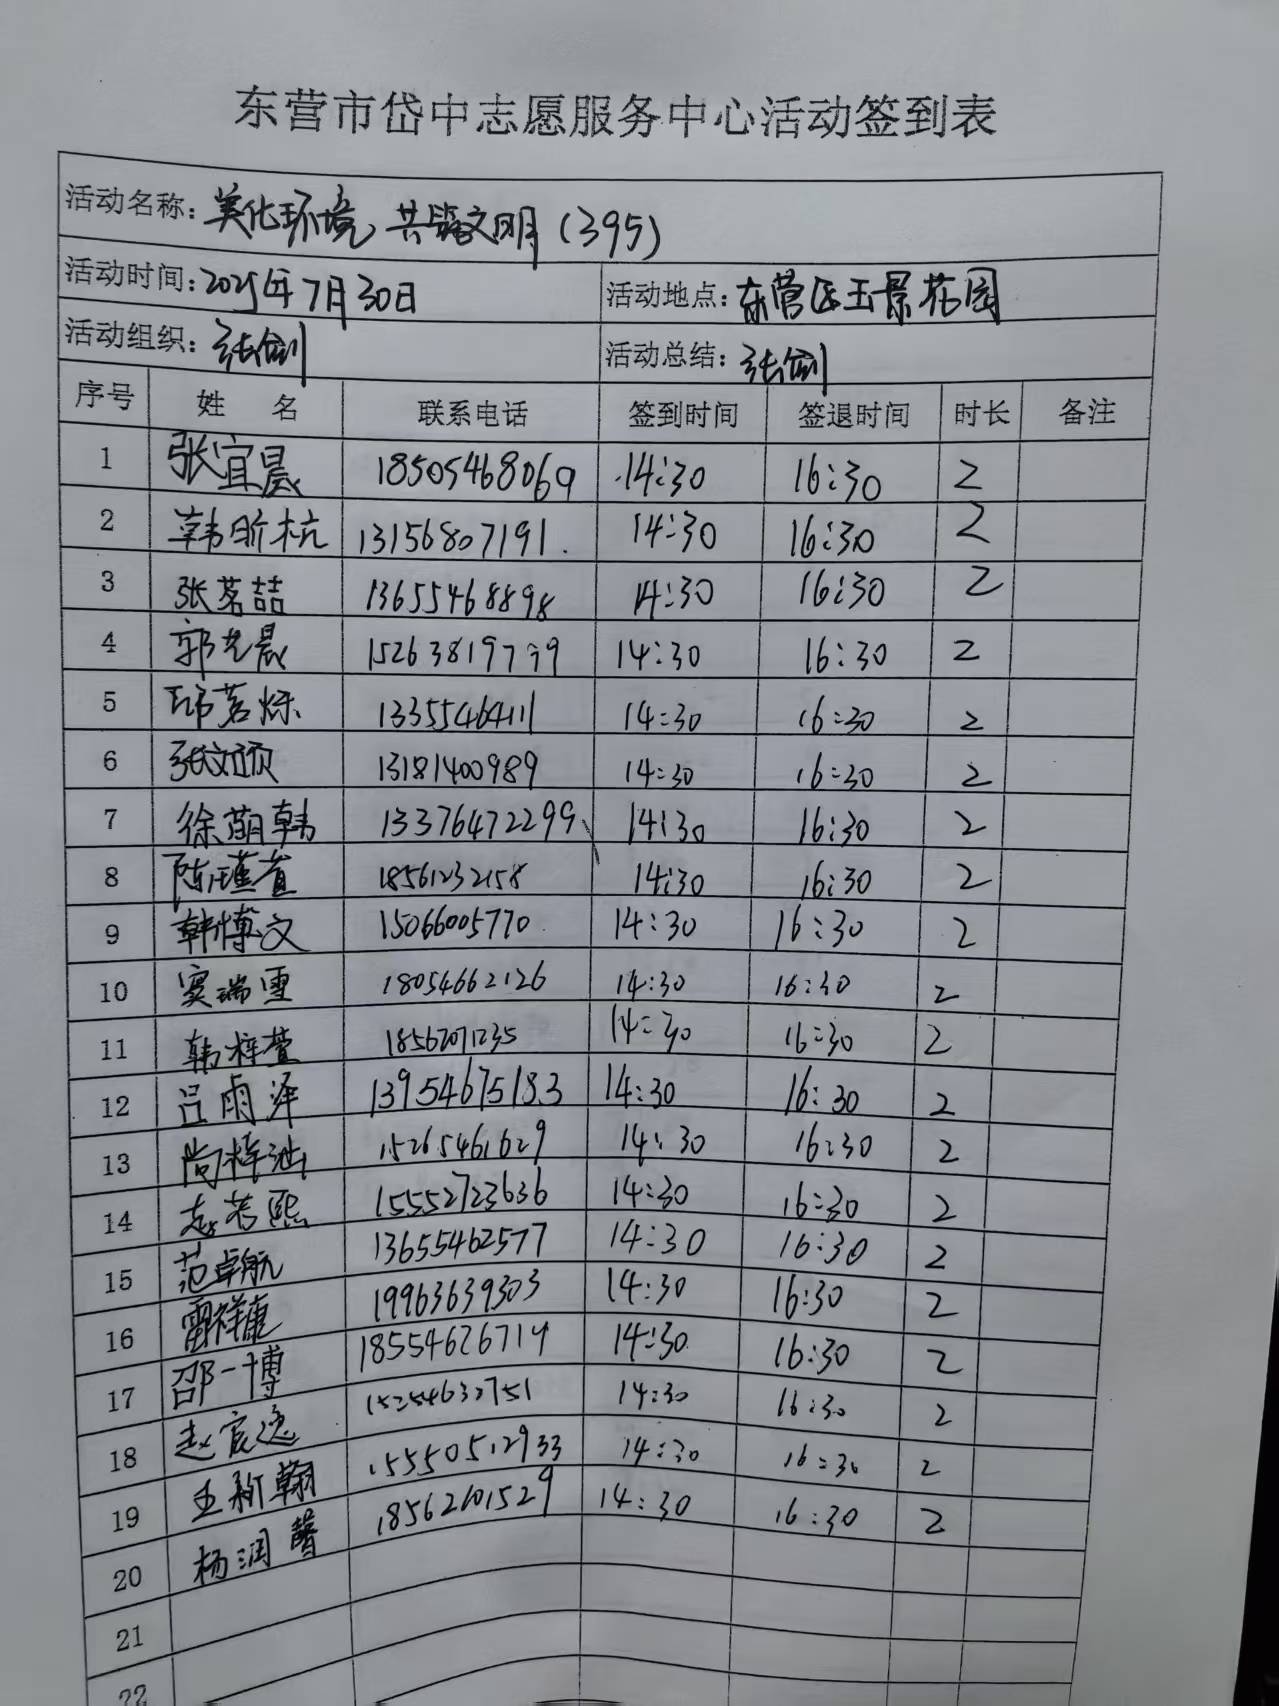 东营市岱中志愿服务中心活动签到表
活动名称: 美化环境 共筑文明 (395)
活动时间: 2025年7月30日 活动地点: 东营区玉景花园
活动组织: 张剑 活动总结: 张剑
序号 姓 名 联系电话 签到时间 签退时间 时长 备注
1 张宜晨 18505468069 14:30 16:30 2
2 韩昕杭 13156807191 14:30 16:30 2
3 张茗喆 13655468898 14:30 16:30 2
4 郭艺晨 14:30 16:30 2
5 邱茗烁 13355464111 14:30 16:30 2
6 张文颂 13181400989 14:30 16:30 2
7 徐萌韩 13376472299 14:30 16:30 2
8 陈瑾萱 18561232158 14:30 16:30 2
9 韩博文 15066005770 14:30 16:30 2
10 窦瑞雪 18054662126 14:30 16:30 2
11 韩梓萱 18562071235 14:30 16:30 2
12 吕雨泽 13954675183 14:30 16:30 2
13 尚梓涵 15265461629 14:30 16:30 2
14 若熙 15552723636 14:30 16:30 2
15 范卓航 13655462577 14:30 16:30 2
16 雷祥康 19963639303 14:30 16:30 2
17 邵一博 18554626719 14:30 16:30 2
18 赵宸逸 15254630751 14:30 16:30 2
19 王新翰 15550512933 14:30 16:30 2
20 杨润馨 18562601529 14:30 16:30 2
21
22